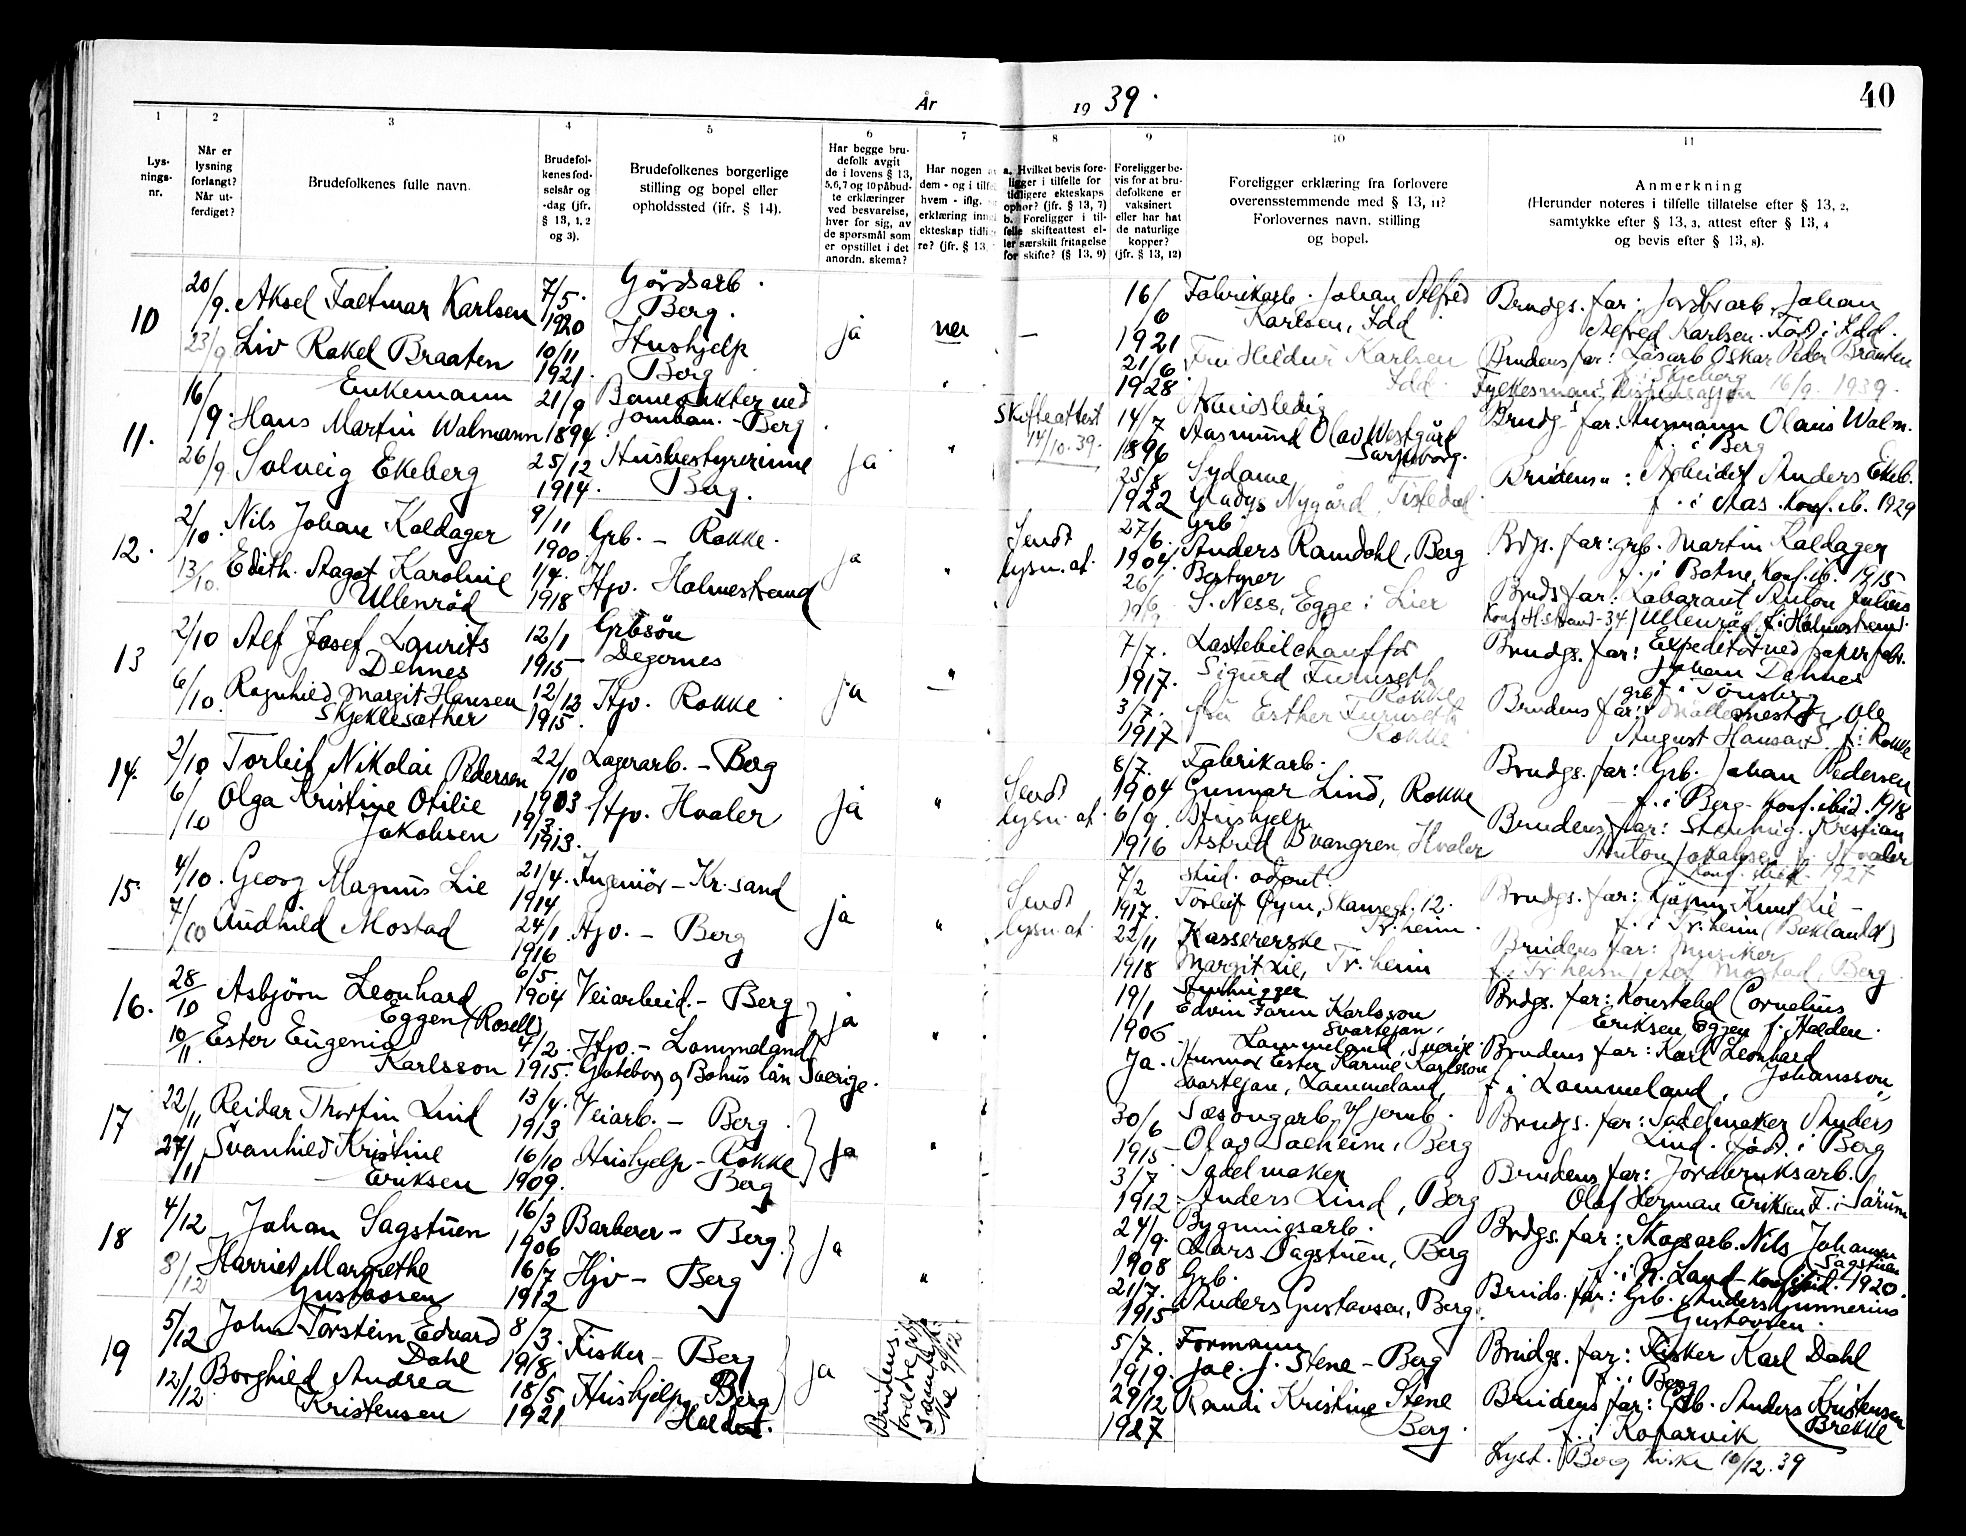 40
År 1939.
1 2 3 4 5 6 7 8 9 10 11
Lys-
nings-
nr.
Når er
lysning
forlangt?
Når ut-
ferdiget?
Brudefolkenes fulle navn.
Brudefol-
kenes fød-
selsår og
-dag (jfr.
§ 13, 1, 2
og 3).
Brudefolkenes borgerlige
stilling og bopel eller
opholdssted (ifr. § 14).
Har begge bru-
defolk avgit
de i lovens § 13,
5,6,7 og 10 påbud-
te erklæringer
ved besvarelse,
hver for sig, av
de spørsmål som
er opstillet i det
anordn. skema?
Har nogen a
dem - og i tilf
hvem - iflg.
erklæring inn
ekteskap tidli
re? (jfr. § 13,
a. Hvilket bevis fore-
ligger i tilfelle for
tidligere ekteskaps
ophør? (§ 13, 7)
b. Foreligger i til-
felle skifteattest el-
ler særskilt fritagelse
for skifte? (§ 13, 9)
Foreligger be-
vis for at bru-
defolkene er
vaksinert
eller har hat
de naturlige
kopper?
(jfr. § 13, 12)
Foreligger erklæring fra forlovere
overensstemmende med § 13, 11?
Forlovernes navn, stilling
og bopel.
Anmerkning
(Herunder noteres i tilfelle tillatelse efter § 13, 2,
samtykke efter § 13, 3, attest efter § 13, 4
og bevis efter § 13, 8).
10
20/9. Aksel Faltmar Karlsen 7/5. 1920 Gårdsarb. Berg.
23/9 Liv Rakel Braaten 10/11 1921. Hushjelp Berg
ja nei —
16/6 1921 Fabrikarb. Johan Alfred
Karlsen, Idd
21/6 1928. Fru Hildur Karlsen
Idd.
Brudgs. far: Jordbr.arb. Johan
Alfred Karlsen. Født i Idd.
Brudens far: Løsarb Oskar Peder Braaten
f. i Skjeberg
16/9. 1939.
11.
16/9. Enkemann
Hans Martin Walmann 21/9 1894. Banevokter ved
jernban. - Berg
26/9 Solveig Ekeberg 25/12 1914. Husbestyrerinne
Berg.
ja "
Skifteattest
14/10. 39.
14/7 1896 Arbeidsledig
Aasmund Olav Westgård
Sarpsborg.
25/8 1922 Sydame
Gladys Nygård Tistedal
Brudg.s far: Olaus Walm.
f. i Berg
Brudens ": Arbeider Anders Ekeb.
f. i Aas. Konf. ib. 1929
12.
2/10. Nils Johan Kaldager 9/11 1900. Grb. - Rokke.
13/10. Edith Aagot Karoline
Ullenrød 1/4. 1918 Hjv. Holmestrand
ja "
Sendt
lysn.at.
27/6. 1904. Grb.
Anders Ramdahl, Berg
26/6 Bestyrer
S. Ness, Egge i Lier
Bdg. far: grb. Martin Kaldager
f. i Botne, Konf. ib. 1915
Bruds far: Labarant Anton Julius
Konf H.strand-34/ Ullenrød, f. i Holmestrand.
13
2/10 Alf Josef Laurits
Dehnes 12/1 1915 Grbsön
Degernes
6/10. Ragnhild Margit Hansen
Skjeklesæther 12/12 1915. Hjv. Rokke
ja "
7/7. 1917. Lastebilchauffør
Sigurd Furuseth
Rokke
3/7. 1917 fru Esther Furuseth
Rokke
Brudgs. far: Expeditör ved papirfabr.
Johan Dehnes
f. i Tönsberg
Brudens far: Ole
August Hansen f. i Rokke
14.
2/10 Torleif Nikolai Pedersen 22/10 1903 Lagerarb. - Berg
6/10 Olga Kristine Otilie
Jakobsen 19/3 1913. Hjv. Hvaler
ja "
Sendt
lysn. at.
8/7. 1904 Fabrikarb.
Gunnar Lind, Rokke
6/9. 1916 Hushjelp
Astrid Svangren, Hvaler
Brudgs. far: Grb. Johan Pedersen
f. i Berg - Konf. ibid. 1918
Brudens far: Stenhug. Kristian
Anton Jakobsen f. i Hvaler
Konf. ibid. 1927
15.
4/10. Georg Magnus Lie 21/4. 1914 Ingeniör - Kr.sand
7/10 Audhild Mostad 24/1 1916 Hjv. - Berg
ja "
Sendt
lysn.at.
7/2 1917. stud. odont.
Torleif Öyen, Skansegt. 12.
Tr.heim.
22/11 1918 Kassererske
Margit Lie, Tr.heim
Brudgs. far: Kjöpm. Knut Lie -
f. i Tr.heim
Brudens far: Musiker
f. i Tr. heim / Alf Mostad, Berg
16.
28/10 Asbjörn Leonhard
Eggen (Rosell) 6/5. 1904 Veiarbeid. - Berg
10/11. Ester Eugenia
Karlsson 4/2. 1915. Hjv. - Lommeland
Göteborg og Bohus län Sverige.
ja "
19/1 1906 Stenhugger
Edvin Farm Karlsson
Svartejan,
Lommeland, Sverige.
Ja. Ester Karine Karlsson
Svartejan, Lommeland,
Brdgs. far: Konstabel Cornelius
Eriksen Eggen f. i Halden.
Brudens far: Karl Leonhard
Johansson,
f. i Lommeland,
17
22/11 Reidar Thorfin Lind 13/4. 1913 Veiarb. - Berg.
27/11 Svanhild Kristine
Eriksen 16/10 1909. Hushjelp - Rokke
Berg
ja "
30/6 1915 Sæsongarb. v/ jernb.
Olav Solheim, Berg
3/7. 1912 Sadelmaker
Anders Lind, Berg
Brudgs. far: Sadelmaker Anders
Lind. Född i Berg
Brudens far: Jordbruksarb.
Olaf Herman Eriksen F. i Särum
18
4/12 Johan Sagstuen 16/3 1906 Barberer - Berg.
8/12 Harriet Margrethe
Gustavsen 16/7 1912 Hjv - Berg
ja "
24/9. 1908 Bygningsarb.
Lars Sagstuen, Berg
21/7. 1915 Grb.
Anders Gustavsen, Berg.
Brdgs. far: Skogsarb. Nils Johansen
Sagstuen
f. i N. Land - Konf. ibid. 1920.
Bruds. far: Grb. Anders Gunnerius
Gustavsen.
19
5/12 John Torstein Edvard
Dahl 8/3. 1918 Fisker - Berg
12/12 Borghild Andrea
Kristensen 18/5 1921 Hushjelp Berg
Halden.
ja
Brudens
foreldre
samtykke
9/12
5/7. 1919. Formann
Joe. J. Stene - Berg
29/12 1927 Randi Kristine Stene
Berg.
Brudgs. far: Fisker Karl Dahl
f. i Berg
Brudens far: Grb. Anders Kristensen
Brekke
f. i Kopervik
Lyst. i Berg kirke 10/12. 39